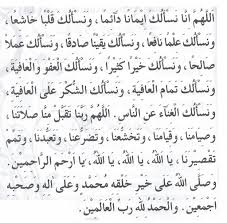 اللهم انا نسألك ايمانا دائما ، ونسألك قلبا خاشعا ،
ونسألك علما نافعا ، ونسألك يقينا صادقا ، ونسألك عملا
صالحا ، ونسألك خيرا كثيرا ، ونسألك العفو والعافية ،
ونسألك تمام العافية ، ونسألك الشكر على العافية ،
ونسألك الغناء عن الناس . اللهم ربنا تقبل منا صلاتنا ،
وصيامنا ، وقيامنا ، وتخشعنا ، وتضرعنا ، وتعبدنا ، وتمم
تقصيرنا ، يا الله ، يا الله ، يا الله ، يا ارحم الراحمين .
وصلى الله على خير خلقه محمد وعلى اله وصحبه
اجمعين . والحمد لله رب العالمين .